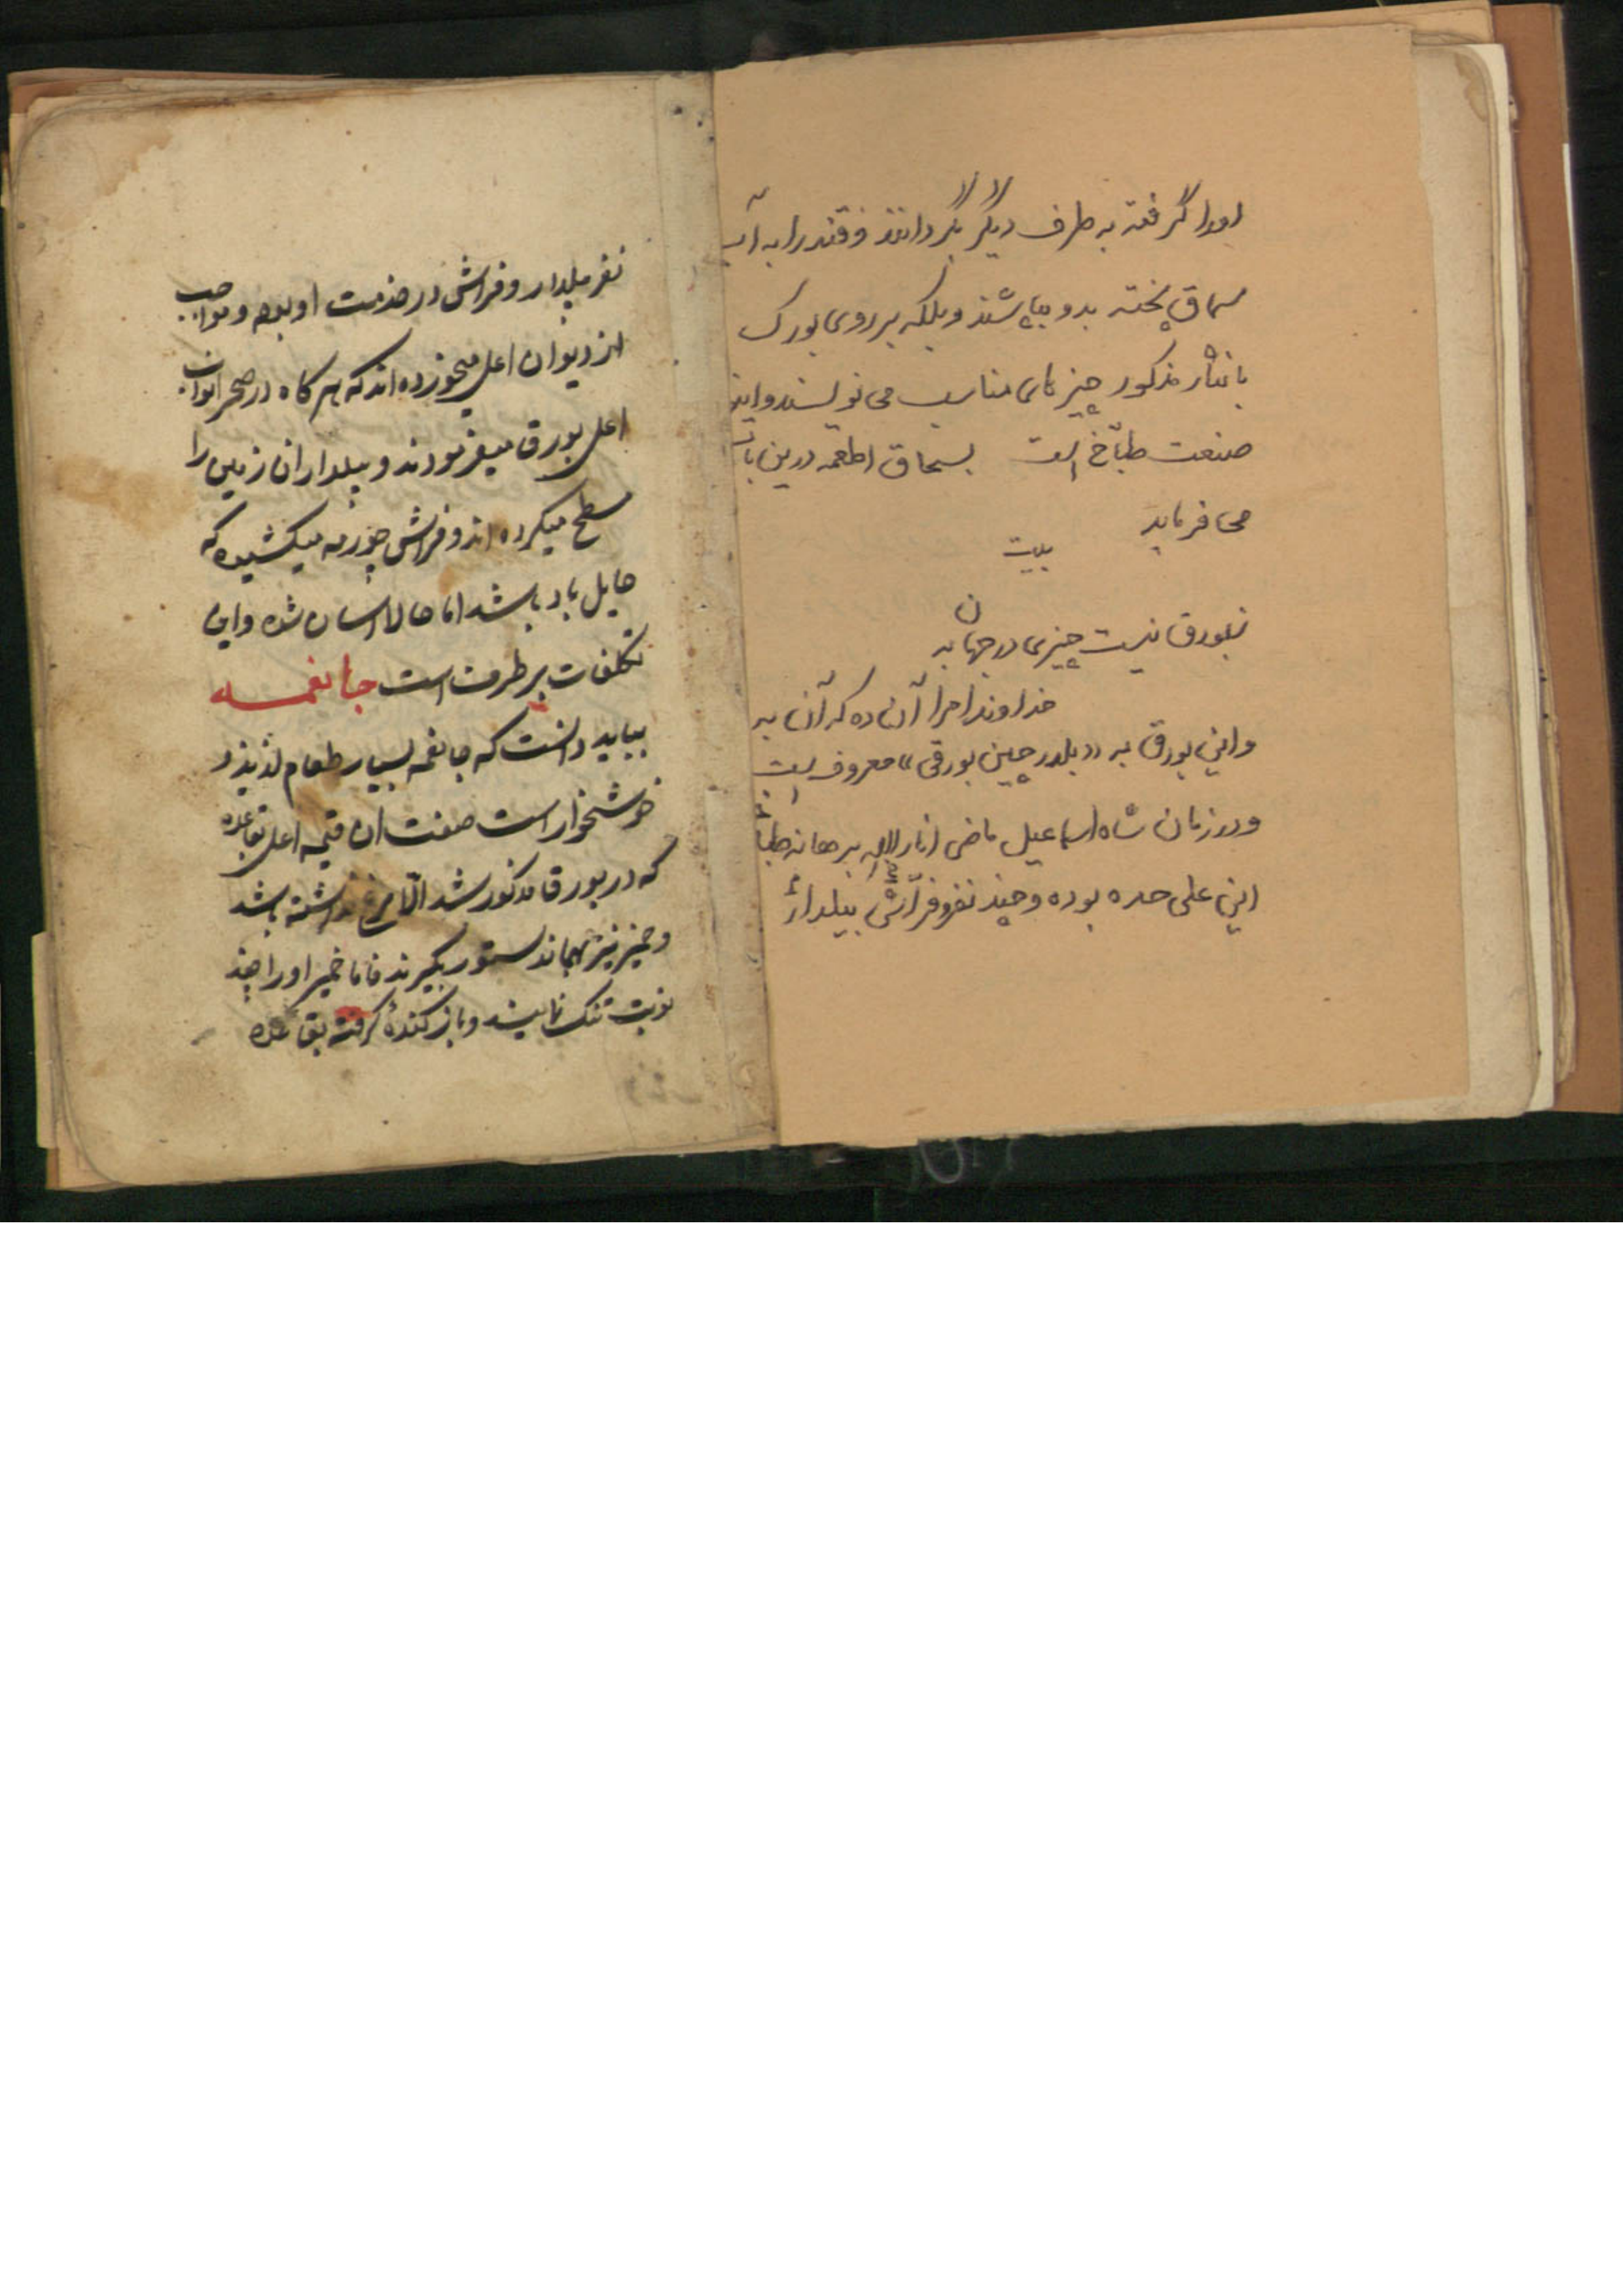 او را گرفته به طرف دیگر بگردانند و قند را به آب
سماق پخته بدو بپاشند و بلکه بر روی بورک
با نثار مذکور چیزهای مناسب می نویسند و این
صنعت طباخ است بسحاق اطعمه درین باب
می فرماید
بیت
ز بورق نیست چیزی در جهان به
خداوندا مرا آن ده که آن به
و این بورق به «بلدرچین بورقی» معروف است
و در زمان شاه اسماعیل ماضی انار الله برهانه طباخ
این علی حده بوده و چند نفر فراش بیلدار
نفر بیلدار و فراش در خدمت او بوده و مواجب
از دیوان اعلی میخورده اند که هر گاه در صحرا نواب
اعلی بورق میفرمودند و بیلداران زمین را
سطح میکرده اند و فراش چورمه میکشیده که
حایل باد باشد اما حالا اسان شده و این
تکلفات بر طرفست است جانغمه
بباید دانست که جانغمه بسیار طعام لذیذ و
خوشخوار است صفت ان قیمه اعلی بقاعده
که در بورق مذکور شد الا مرغ نداشته باشد
و خمیر نیز بهماندستور بگیرند فاما خمیر او را چند
نوبت تنک نمایند و باز کنده گرفته بقاعده